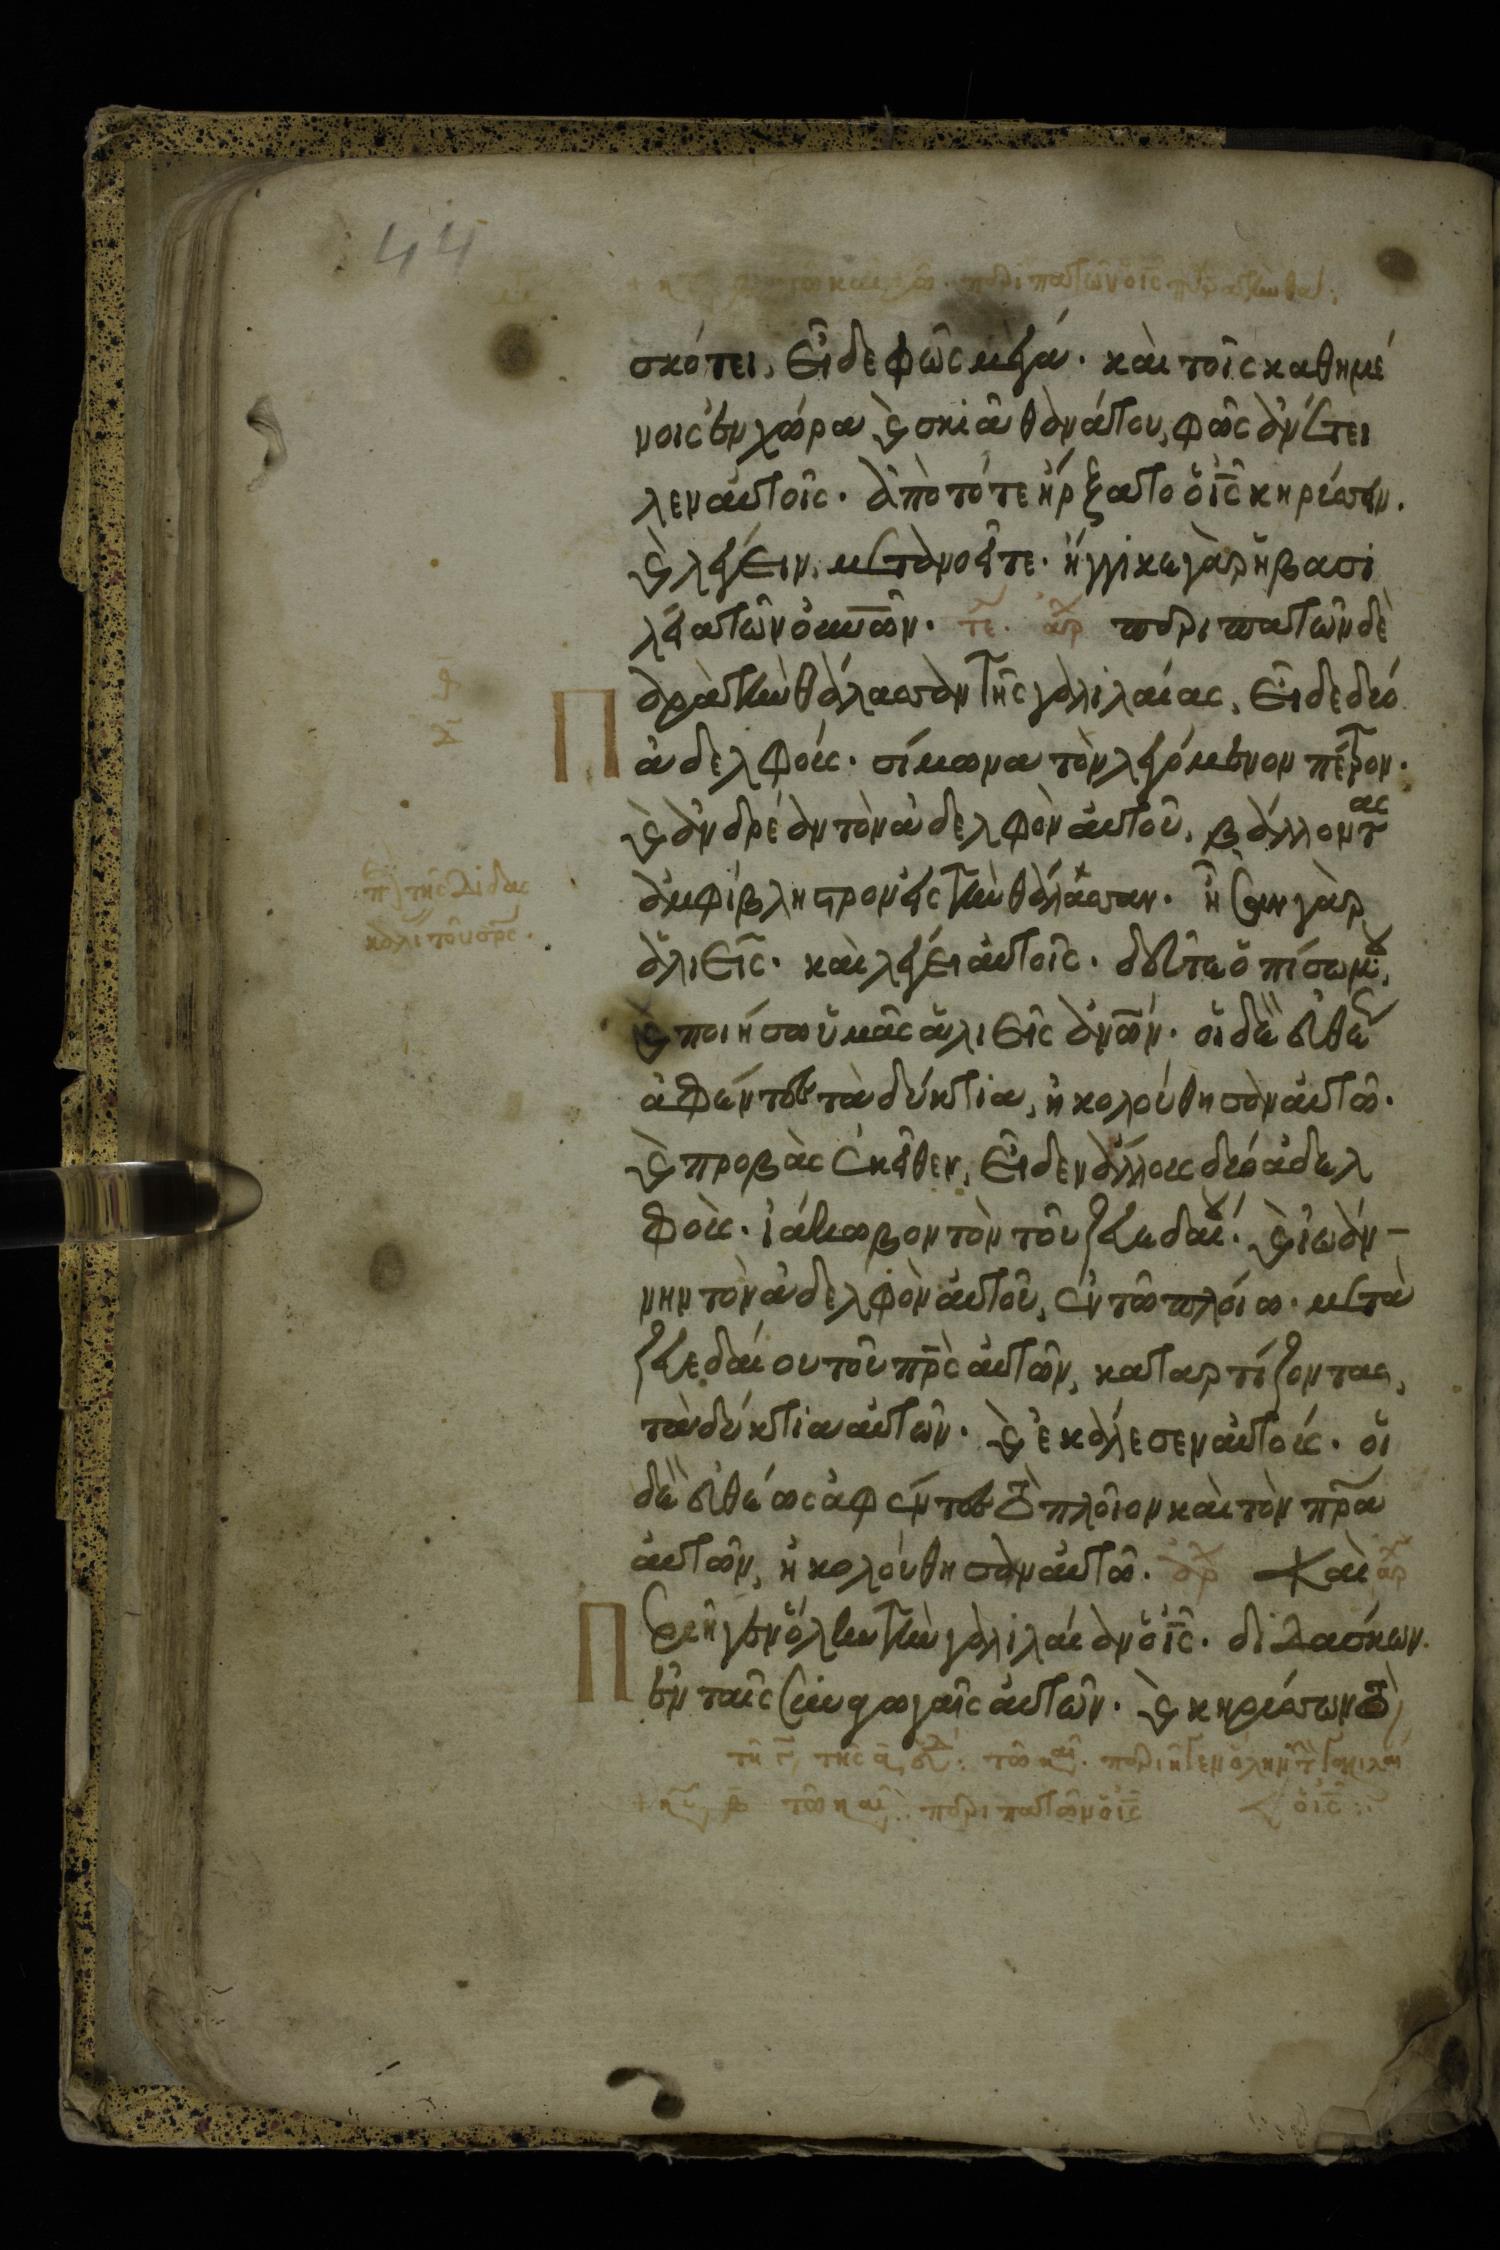 44
σκότει, εἶδε φῶς μέγα· καὶ τοῖς καθημέ
νοις ἐν χώρα καὶ σκιᾶ θανάτου, φῶς ἀνέτει
λεν αὐτοῖς· ἀπὸ τότε ἤρξατο ὁ ις κηρύσσειν.
καὶ λέγειν, μετανοεῖτε· ἤγγικε γὰρ ἡ βασι
λεία τῶν οὐνῶν· τε. αρ περιπατῶν δὲ
παρὰ τὴν θάλασσαν τῆς γαλιλαίας, εἶδε δύο
ἀδελφούς· σίμωνα τὸν λεγόμενον πέτρον·
καὶ ἀνδρέαν τὸν ἀδελφὸν αὐτοῦ, βάλλοντας
ἀμφίβληστρον εἰς τὴν θάλασσαν· ἦσαν γὰρ
ἁλιεῖς· καὶ λέγει αὐτοῖς· δεῦτε ὀπίσω μου,
καὶ ποιήσω ὑμᾶς ἁλιεῖς ἀνῶν· οἱ δὲ εὐθέως
ἀφέντες τὰ δύκτια, ἠκολούθησαν αὐτῶ·
καὶ προβὰς ἐκεῖθεν, εἶδεν ἄλλους δύο ἀδελ
φούς· ἰάκωβον τὸν τοῦ ζεβεδαίου· καὶ ἰωάν-
νην τὸν ἀδελφὸν αὐτοῦ, ἐν τῶ πλοίω· μετὰ
ζεβεδαίου τοῦ πρς αὐτῶν, καταρτίζοντας,
τὰ δύκτια αὐτῶν· καὶ ἐκάλεσεν αὐτούς· οἱ
δὲ εὐθέως ἀφέντες τὸ πλοῖον καὶ τὸν πρα
αὐτῶν, ἠκολούθησαν αὐτῶ· Καὶ αρ
περιῆγεν ὅλην τὴν γαλιλαίαν ὁ ις· διδάσκων.
ἐν ταῖς συναγωγαῖς αὐτῶν· καὶ κηρύσσων τὸ
περιπατῶν ὁ ις